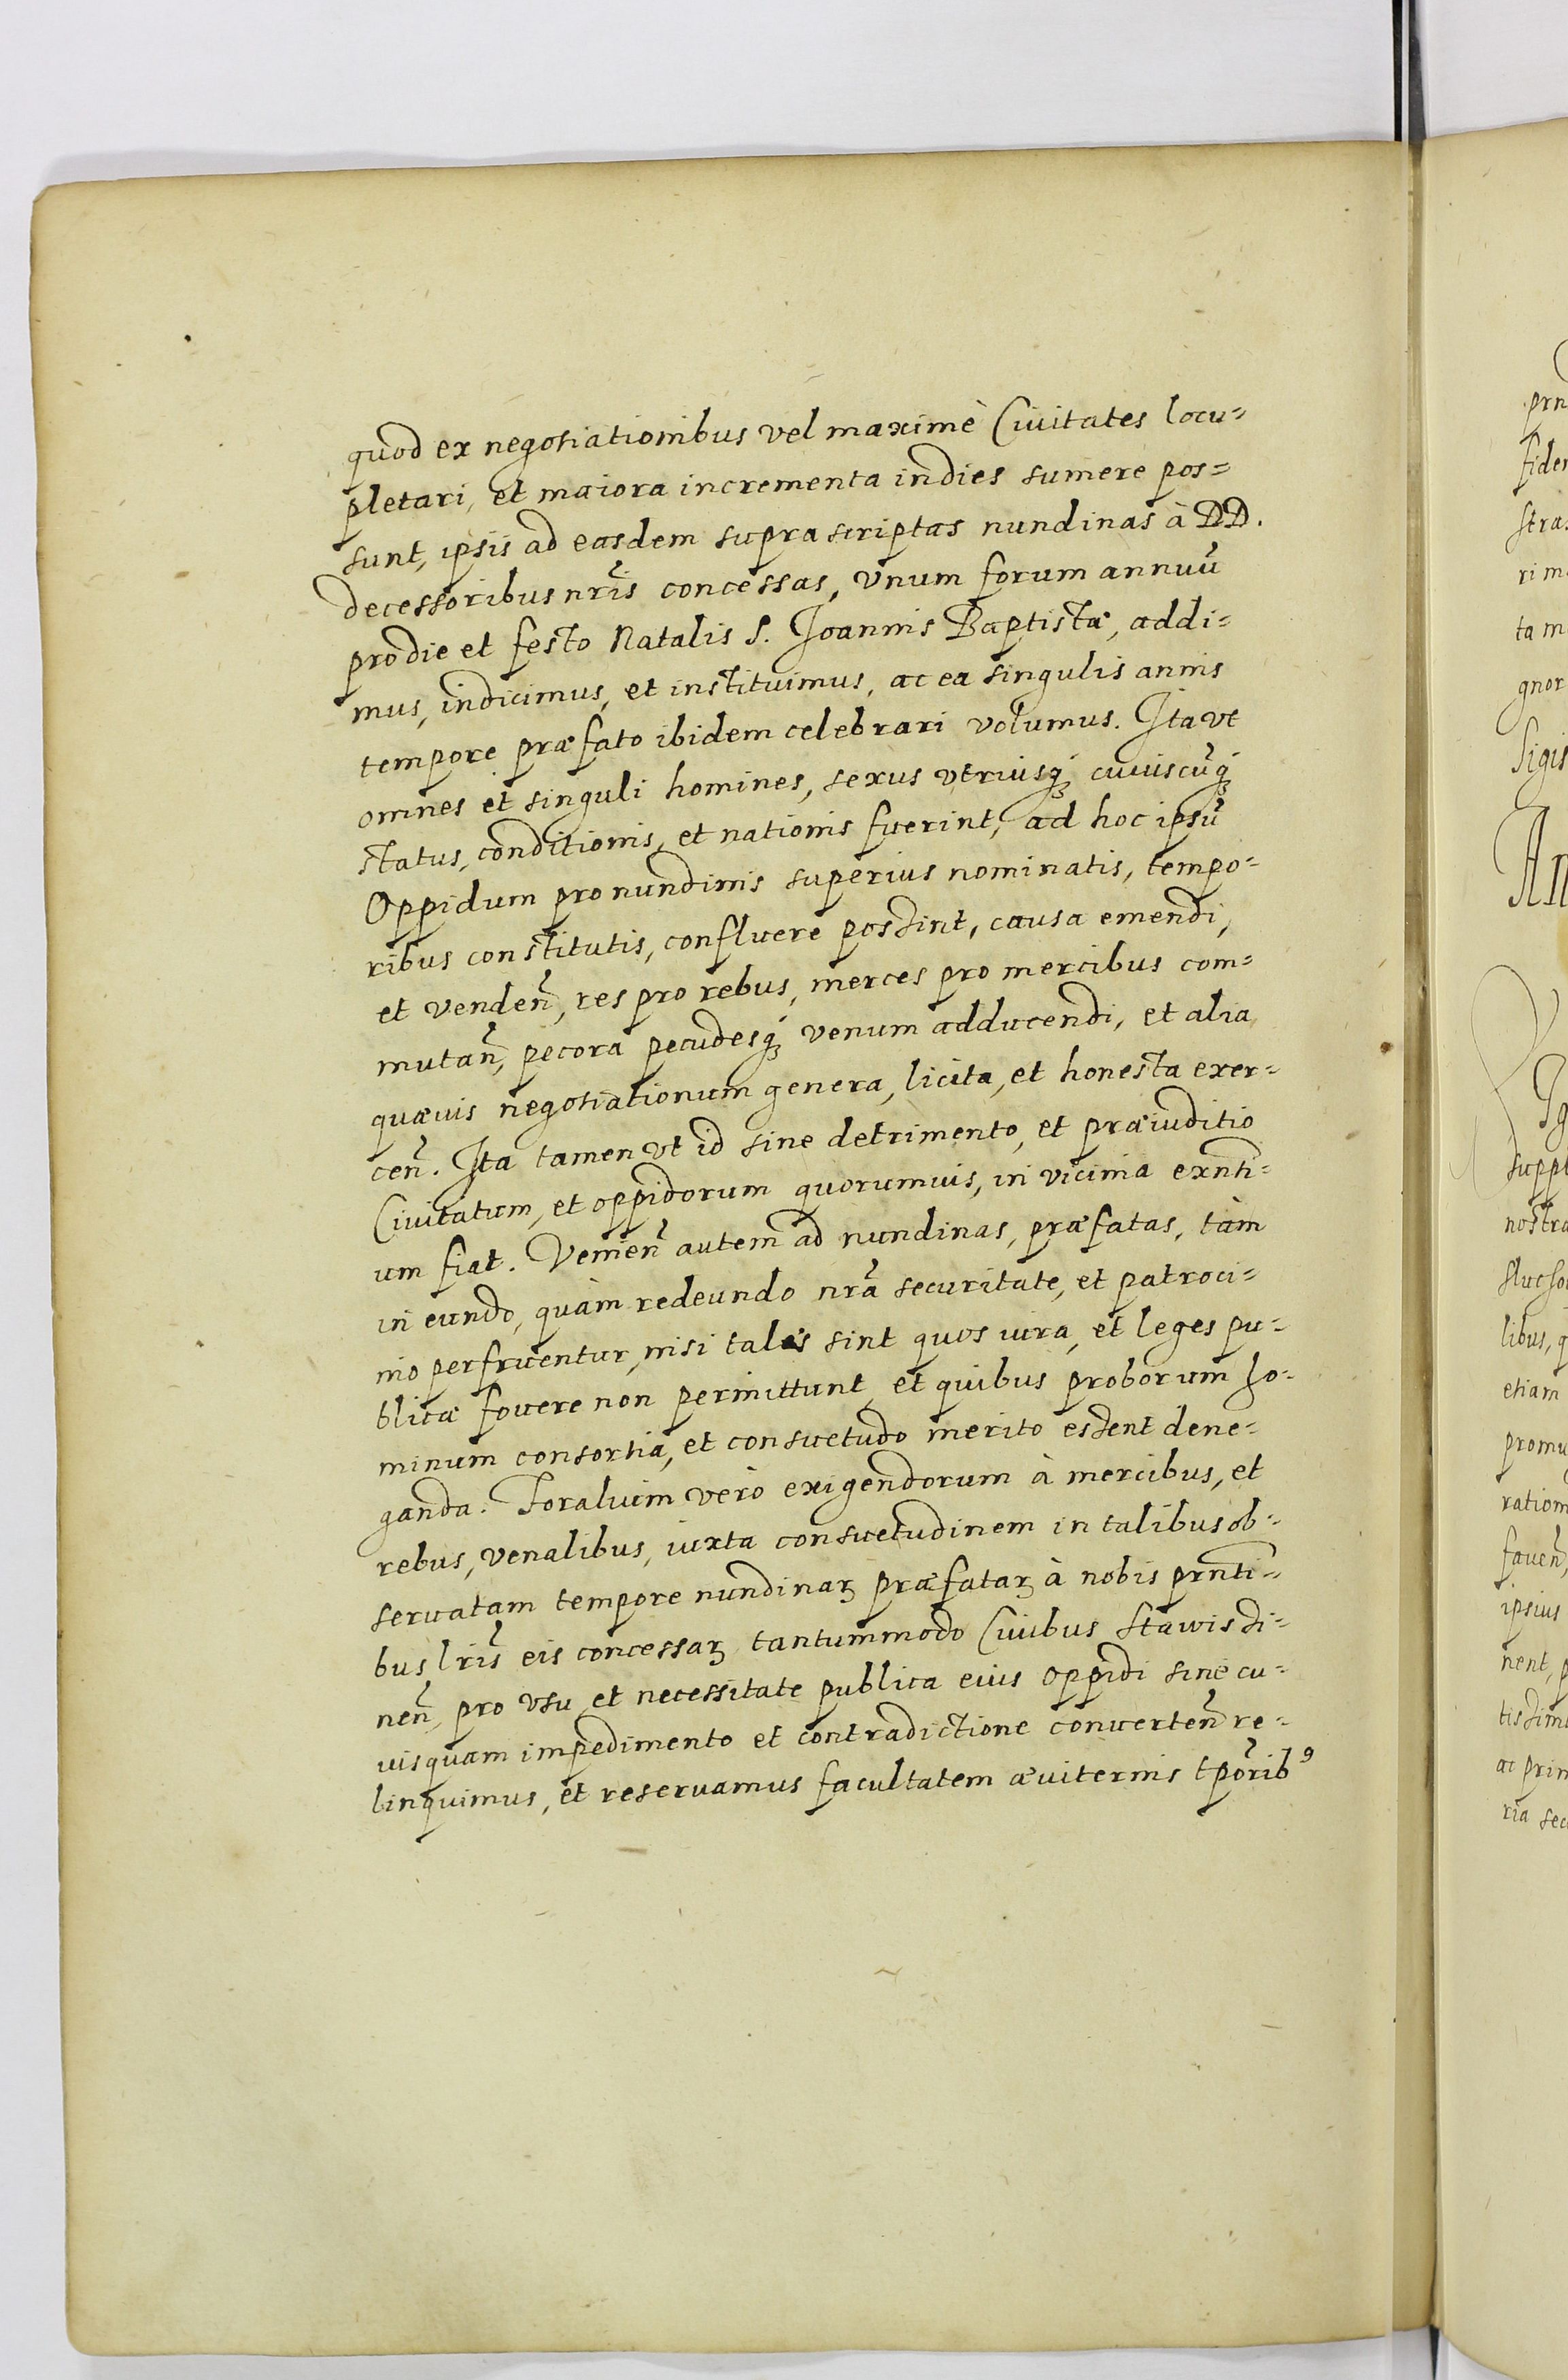 quod ex negotiationibus vel maximè Ciuitates locu=
pletari, et maiora incrementa indies sumere pos=
sunt, ipsis ad easdem suprascriptas nundinas à DD.
decessoribus nr̃is concessas, vnum forum annuũ
pro die et festo Natalis S. Joannis Baptistæ, addi=
mus, indicimus, et instituimus, ac ea singulis annis
tempore præfato ibidem celebrari volumus. Ita vt
omnes et singuli homines, sexus vtriusq́ȝ cuiuscũq́ȝ
status, conditionis, et nationis fuerint, ad hoc ipsũ
Oppidum pro nundinis superius nominatis, tempo=
ribus constitutis, confluere possint, causa emendi,
et vendeñ, res pro rebus, merces pro mercibus com=
mutañ, pecora pecudesq́ȝ venum adducendi, et alia
quæuis negotiationum genera, licita, et honesta exer=
ceñ. Ita tamen vt id sine detrimento, et præiuditio
Ciuitatum, et oppidorum quorumuis, in vicinia exñti=
um fiat. Venieñ autem ad nundinas, præfatas, tàm
in eundo, quàm redeundo nr̃a securitate, et patroci=
nio perfruentur, nisi tales sint quos iura, et leges pu=
blicæ fouere non permittunt, et quibus proborum ho=
minum consortia, et consuetudo merito essent dene=
ganda. Foralium verò exigendorum à mercibus, et
rebus, venalibus, iuxta consuetudinem in talibus ob=
seruatam tempore nundinaꝝ præfataꝝ à nobis prñti=
bus lr̃is eis concessaꝝ tantummodo Ciuibus Stawisci=
neñ, pro vsu et necessitate publica eius Oppidi sine cu=
uisquam impedimento et contradictione conuerteñ re=
linquimus, et reseruamus facultatem æuiternis tp̃oribꝰ
prn
fider
stra
ri m
tam
gnor
Sigis
An
Ig
suppl
nostra
libus, q
etiam
promu
ration
faueñ,
ipsius
nent, p
tissim
ac prin
ria sec